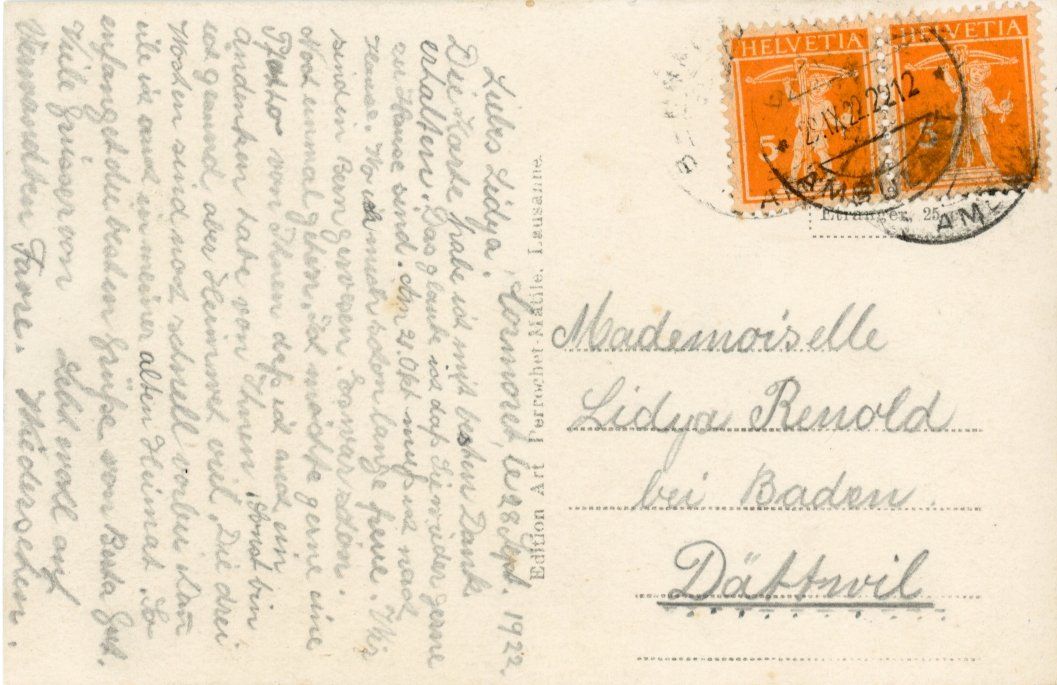 HELVETIA HELVETIA
5 5
IX.22.2212
AMBUL
AM
Etranger, 25
Edition Art Perrochet-Matile, Lausanne
Mademoiselle
Lidya Renold
bei Baden.
Dättwil
Cormoret, le 28 Sept. 1922
Liebes Lidya!
Die Karte habe ich mit bestem Dank
erhalten. Das glaube ich daß Sie wieder gerne
zu Hause sind. Am 21. Okt muß ich nach
Hause. mich schon lange freue. Wir
sind in Bern gewesen. Es war schön.
Noch einmal gehen, Ich möchte gerne eine
Photo von Ihnen daß ich auch ein
Andenken habe von Ihnen, Sonst bin
ich gesund, aber Heimweh viel. Die drei
Wochen sind noch schnell vorbei dan
eile ich auch in meiner alten Heimat. So
empfanget die besten Grüße von Berta
Viele Grüsse von Lebt wohl auf
Verwandten Favre. Wiedersehen.